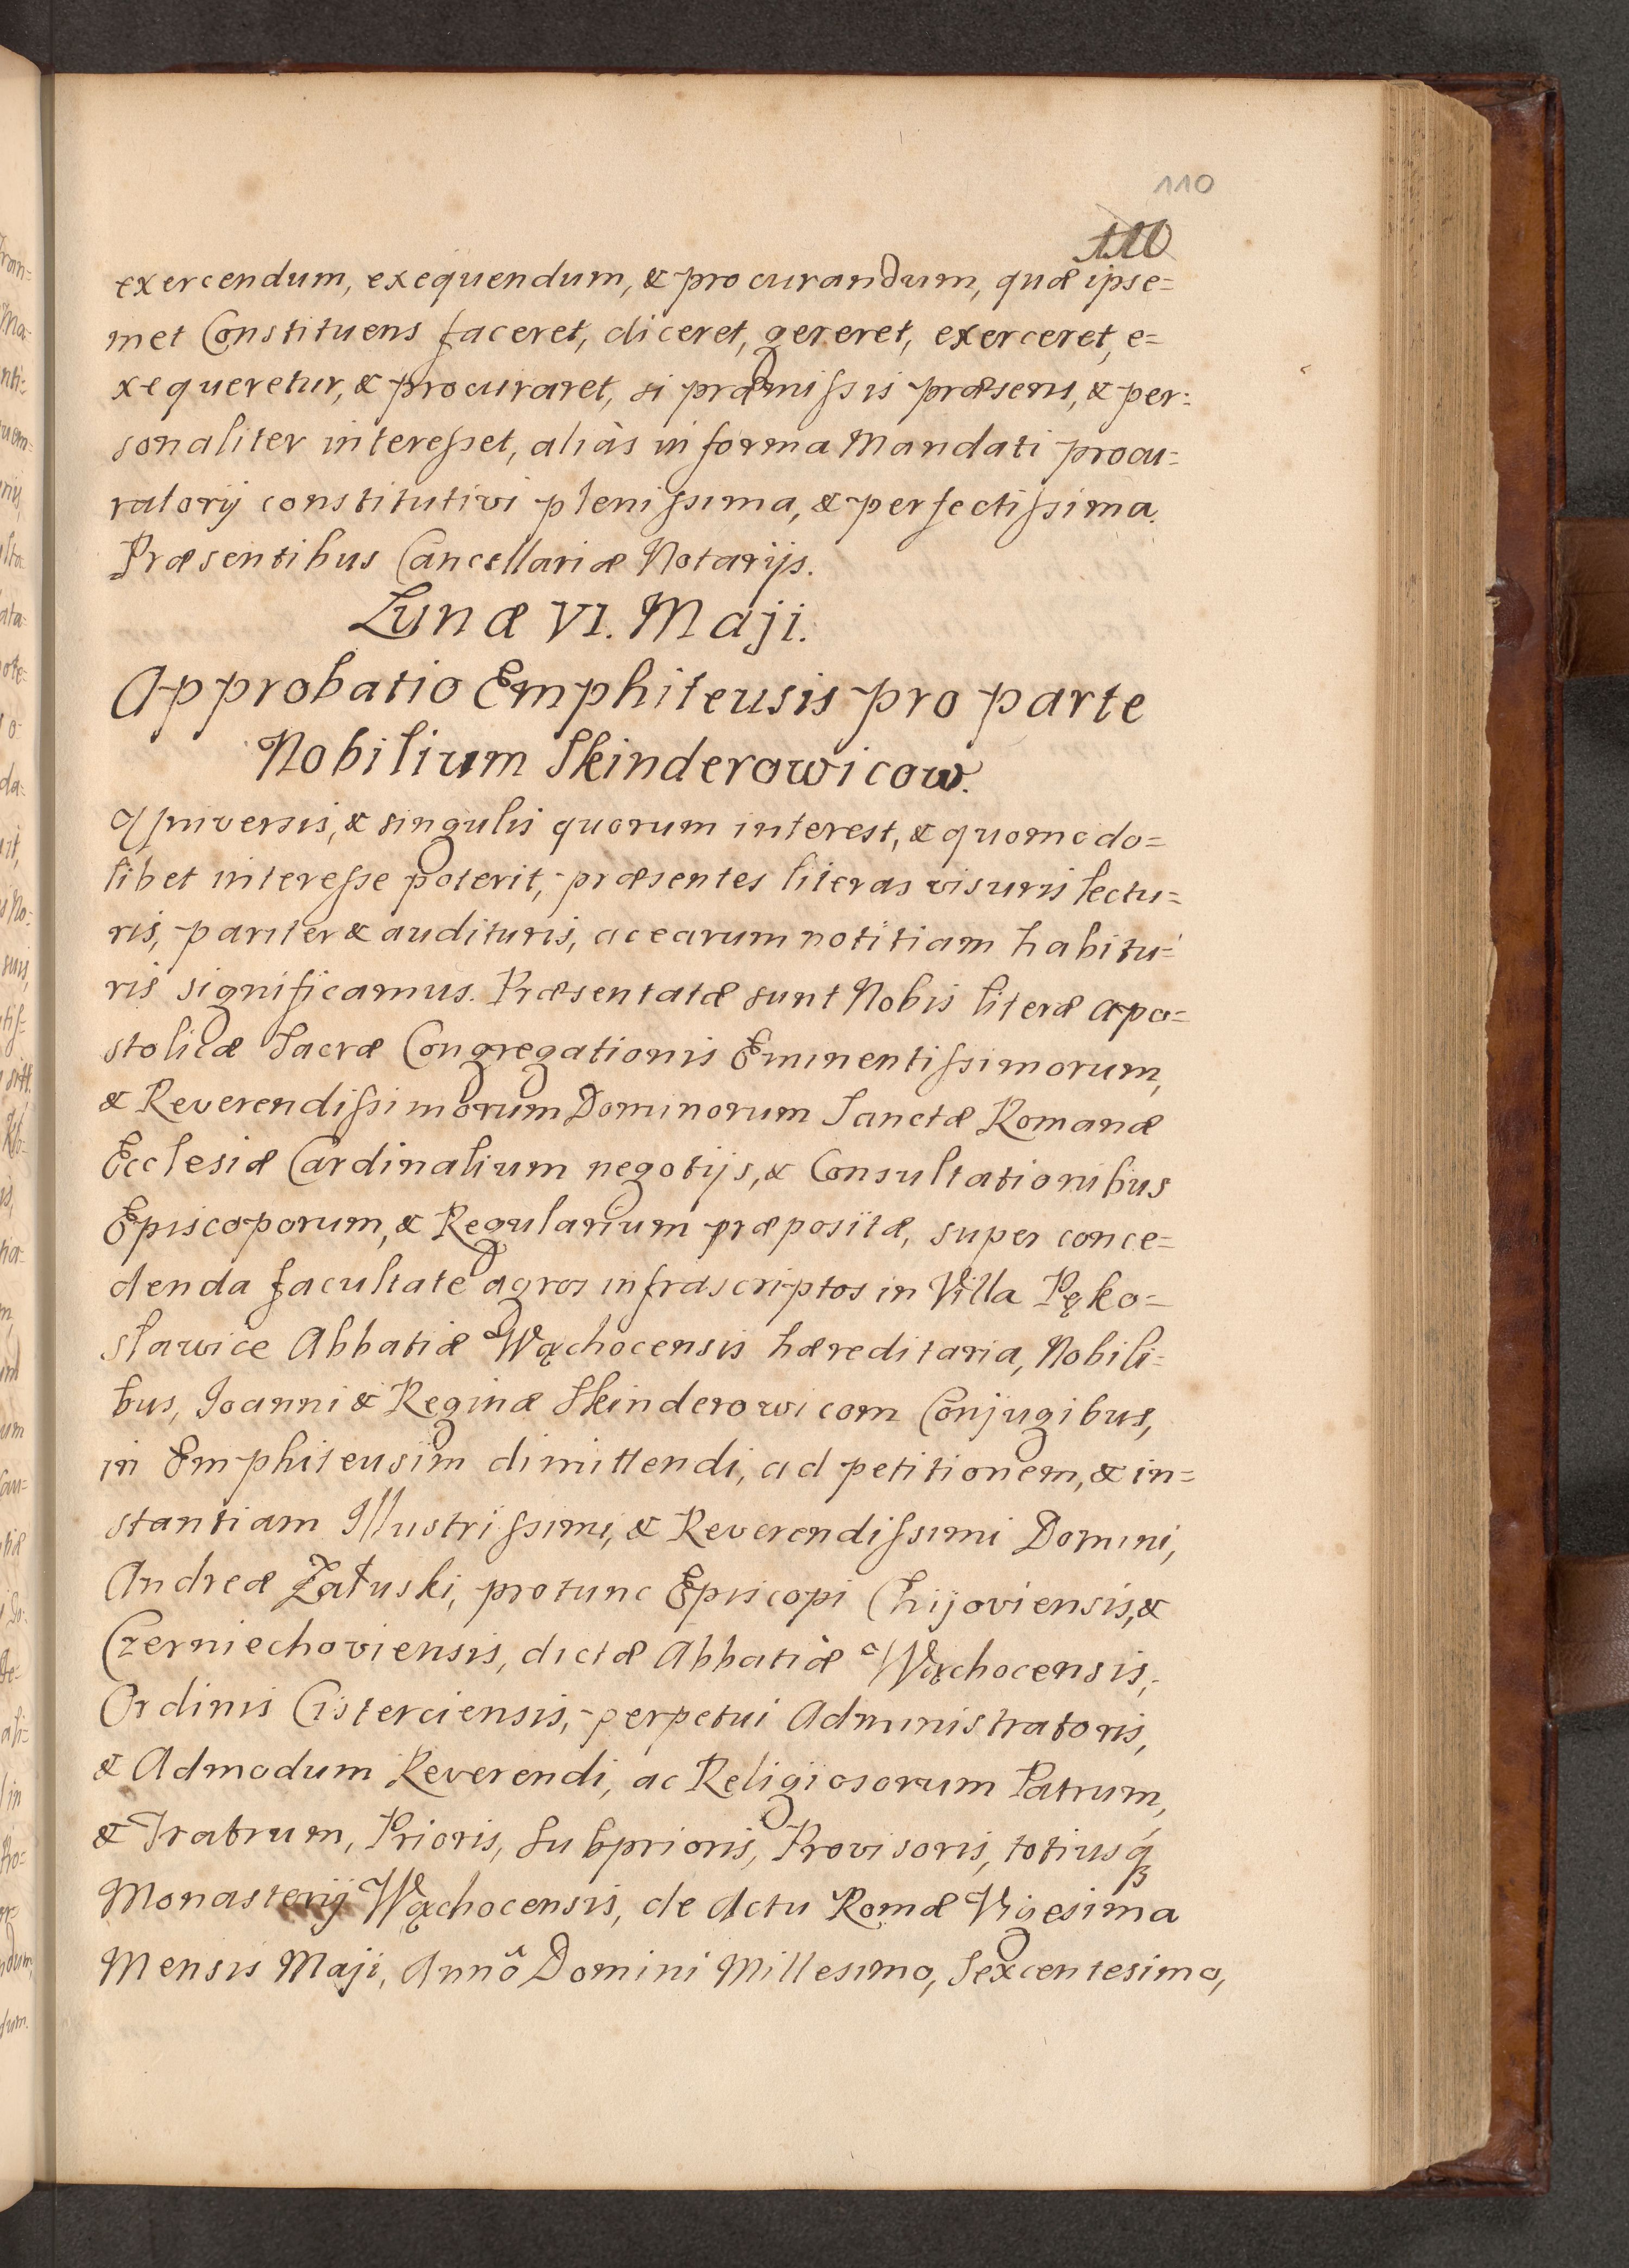 110
110
exercendum, exequendum, & procurandum, quæ ipse=
met Constituens faceret, diceret, gereret, exerceret, e=
xequeretur, & procuraret, si præmissis præsens, & per=
sonaliter interesset, aliàs in forma Mandati procu=
ratorij constitutivi plenissima, & perfectissima.
Præsentibus Cancellariæ Notarijs.
Lunæ VI. Maji.
Approbatio Emphiteusis pro parte
Nobilium Skinderowicow.
Universis, & singulis quorum interest, & quomodo=
libet interesse poterit, præsentes literas visuris lectu=
ris, pariter & audituris, ac earum notitiam habitu=
ris significamus. Præsentatæ sunt Nobis literæ Apo=
stolicæ Sacræ Congregationis Eminentissimorum,
& Reverendissimorum Dominorum Sanctæ Romanæ
Ecclesiæ Cardinalium negotijs, & Consultationibus
Episcoporum, & Regularium præpositæ, super conce=
denda facultate agros infrascriptos in Villa Pęko=
sławice Abbatiæ Wąchocensis hæreditaria, Nobili=
bus, Joanni & Reginæ Skinderowicom Conjugibus,
in Emphiteusim dimittendi, ad petitionem, & in=
stantiam Illustrissimi, & Reverendissimi Domini,
Andreæ Załuski, protunc Episcopi Chijoviensis, &
Czerniechoviensis, dictæ Abbatiæ Wąchocensis,
Ordinis Cisterciensis, perpetui Administratoris,
& Admodum Reverendi, ac Religiosorum Patrum,
& Fratrum, Prioris, Subprioris, Provisoris, totiusq3
Monasterij Wąchocensis, de Actu Romæ Vigesima
Mensis Maji, Annô Domini Millesimo, Sexcentesimo,